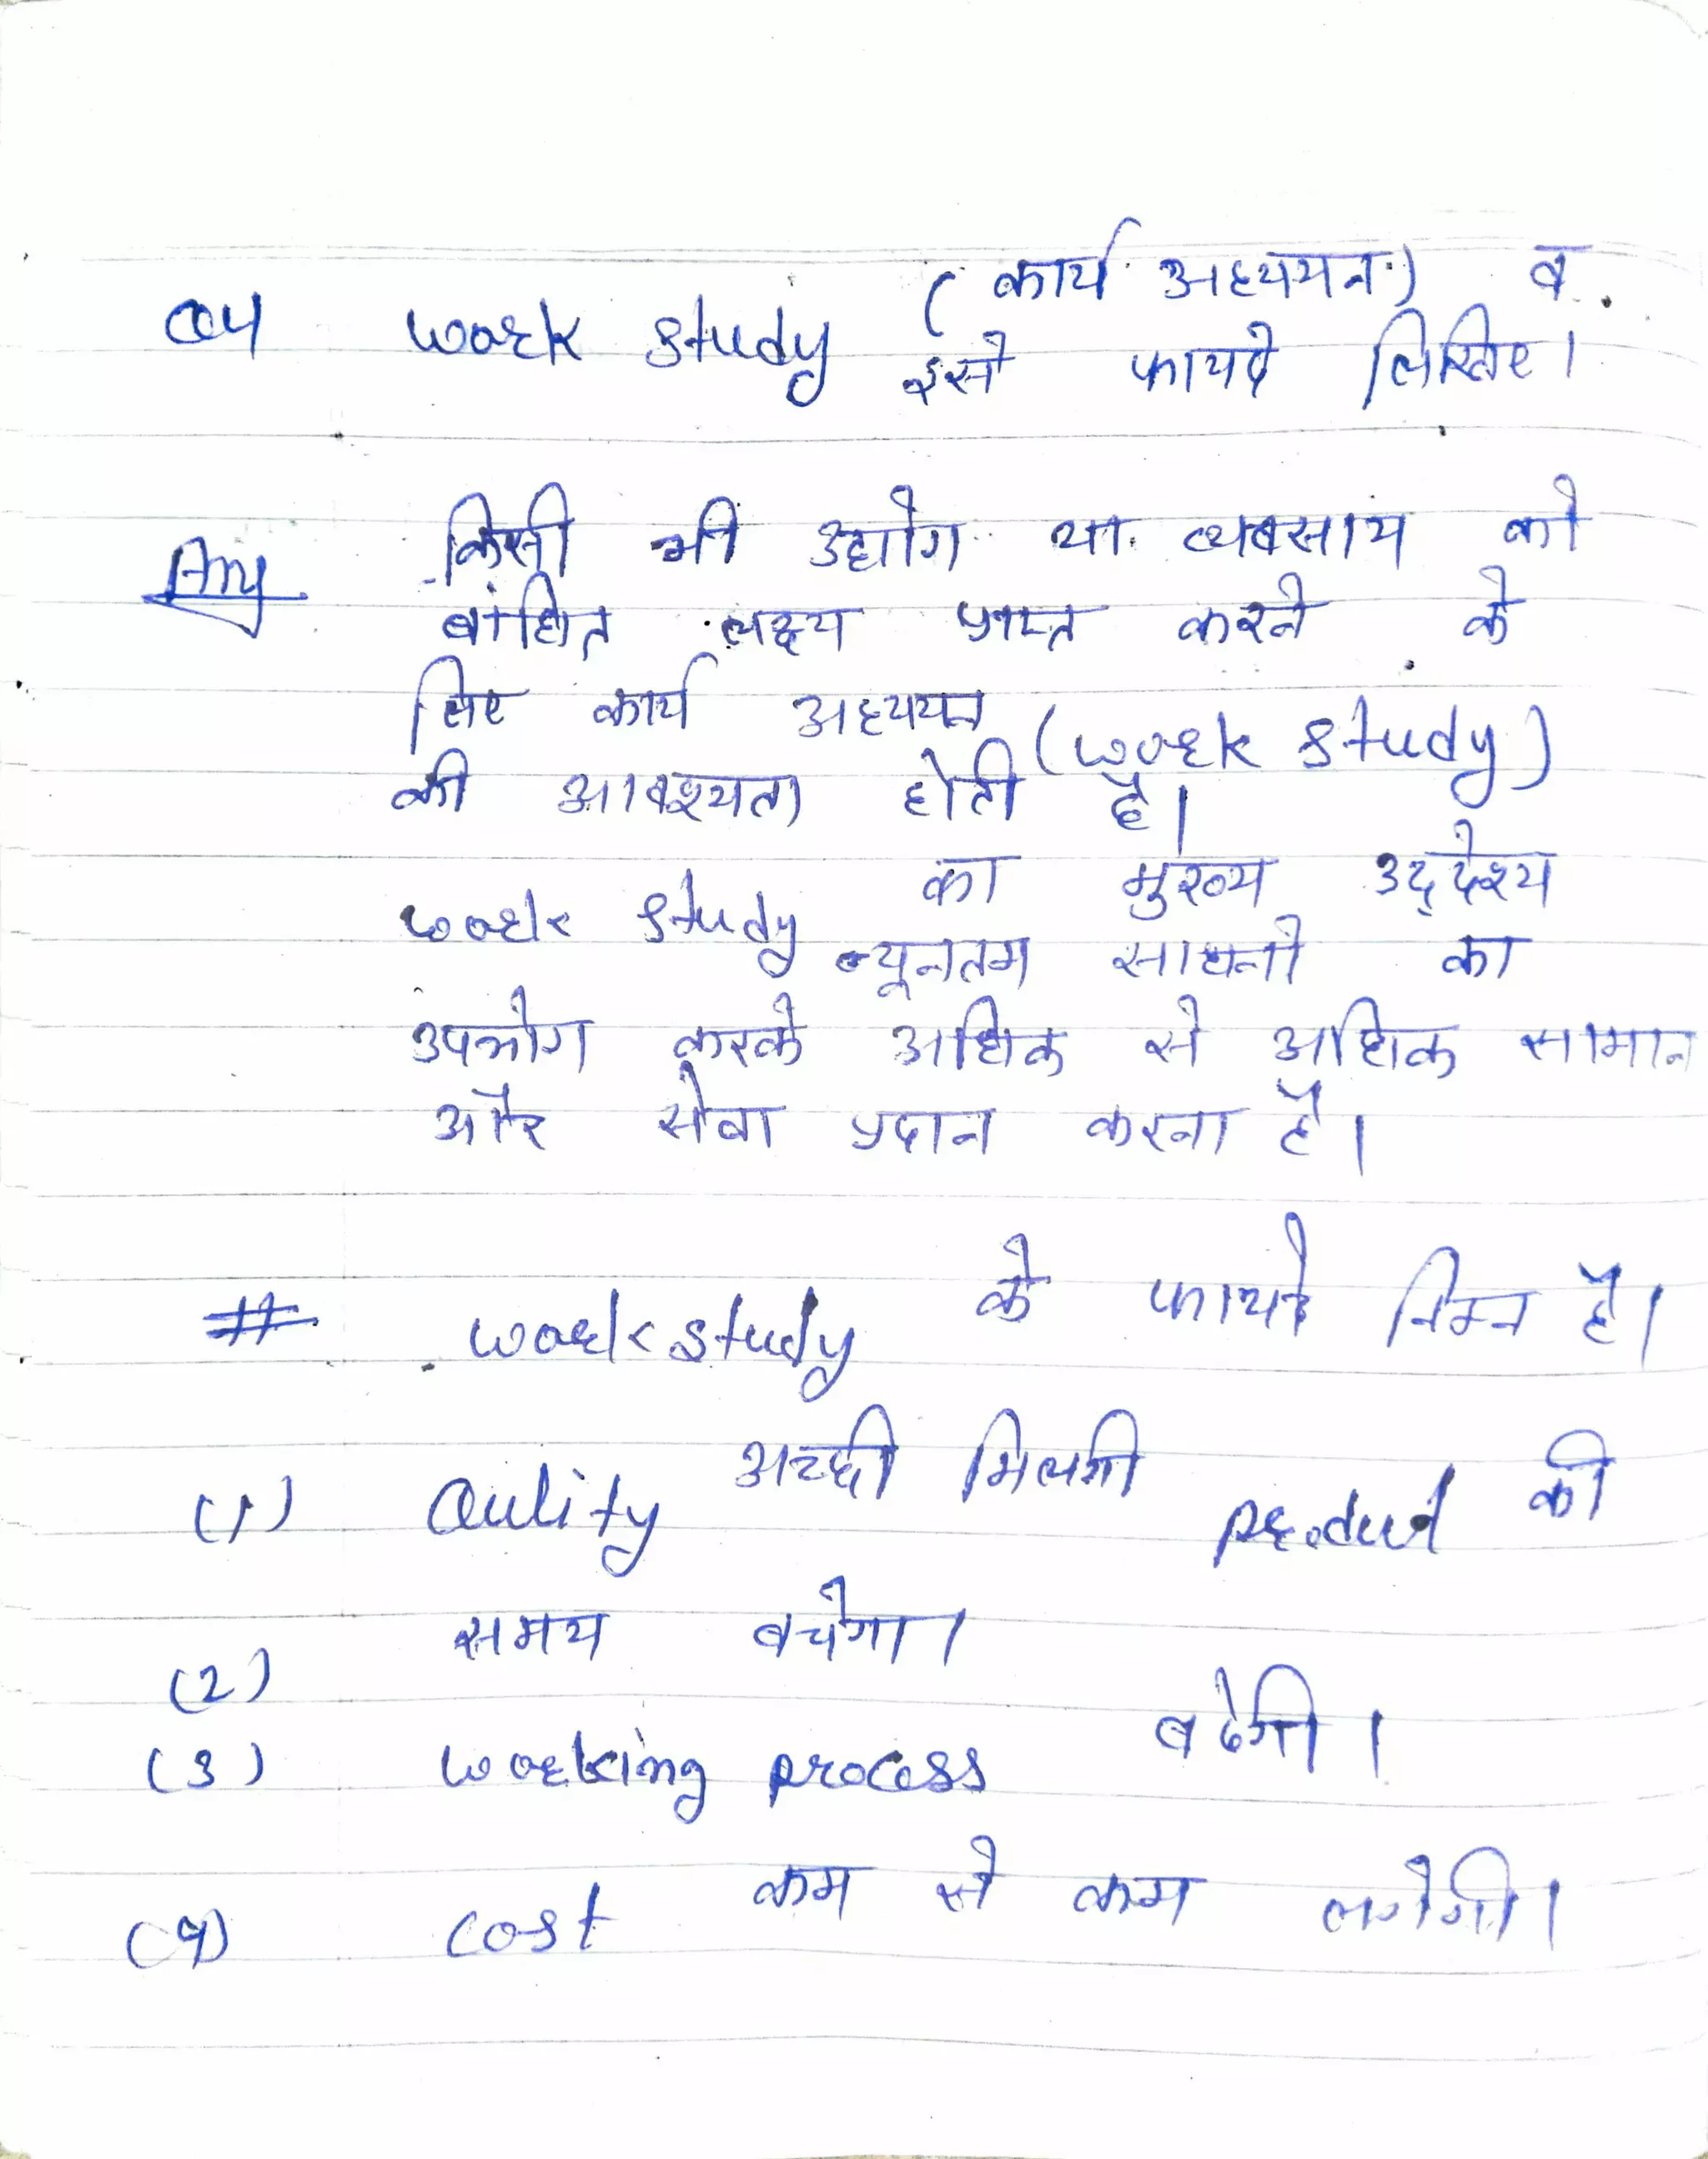 Q4 work study (कार्य अध्ययन) व
इसे फायदे लिखिए।
Ans किसी भी उद्योग या व्यवसाय को
वांछित लक्ष्य प्राप्त करने के
लिए कार्य अध्ययन (work study)
की आवश्यता होती है।
work study का मुख्य उद्देश्य
न्यूनतम साधनो का
उपभोग करके अधिक से अधिक सामान
और सेवा प्रदान करना है।
# work study के फायदे निम्न है।
(1) Qulity अच्छी मिलगी product की
(2) समय बचेगा।
(3) working process बढेगी।
(4) cost कम से कम लगेगी।